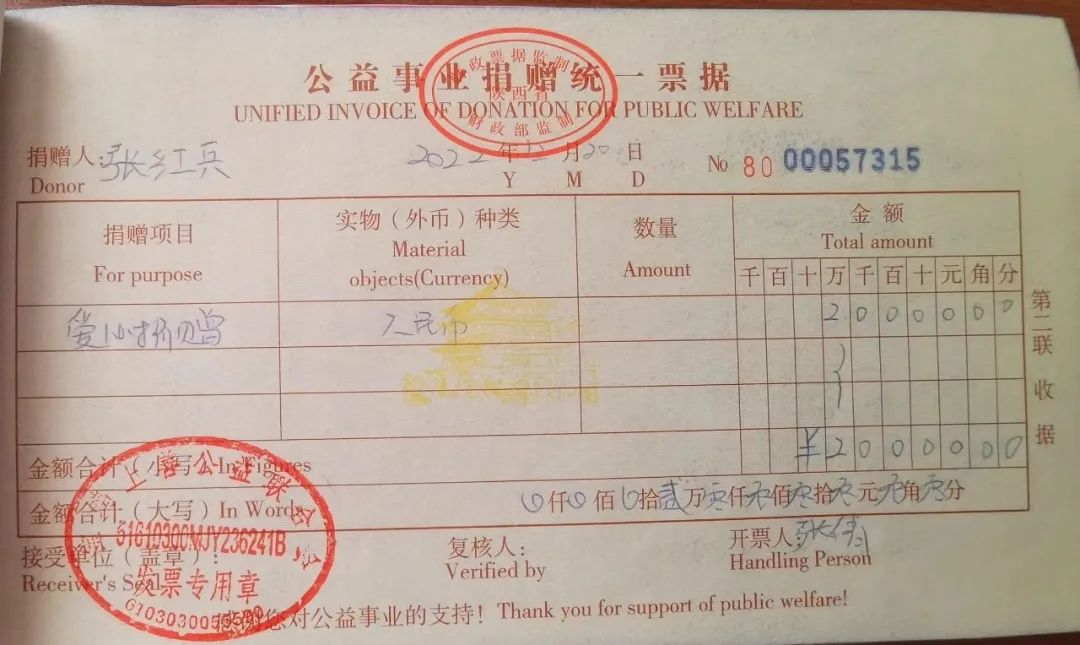 公益事业捐赠统一票据
UNIFIED INVOICE OF DONATION FOR PUBLIC WELFARE
财政票据监制
陕西省
财政部监制
捐赠人: 张红兵 2022年12月20日 № 80 00057315
Donor Y M D
捐赠项目 实物（外币）种类 数量 金额
For purpose Material objects(Currency) Amount Total amount
千 百 十 万 千 百 十 元 角 分
爱心捐赠 人民币 2 0 0 0 0 0 0
金额合计（小写）In Figures ¥2 0 0 0 0 0 0
金额合计（大写）In Words 仟 佰 拾贰万零仟零佰零拾零元零角零分
接受单位（盖章）: 复核人: 开票人: 张倩
Receiver's Seal Verified by Handling Person
上善公益联合
51610300MJY236241B
发票专用章
感谢您对公益事业的支持！Thank you for support of public welfare!
第二联 收据